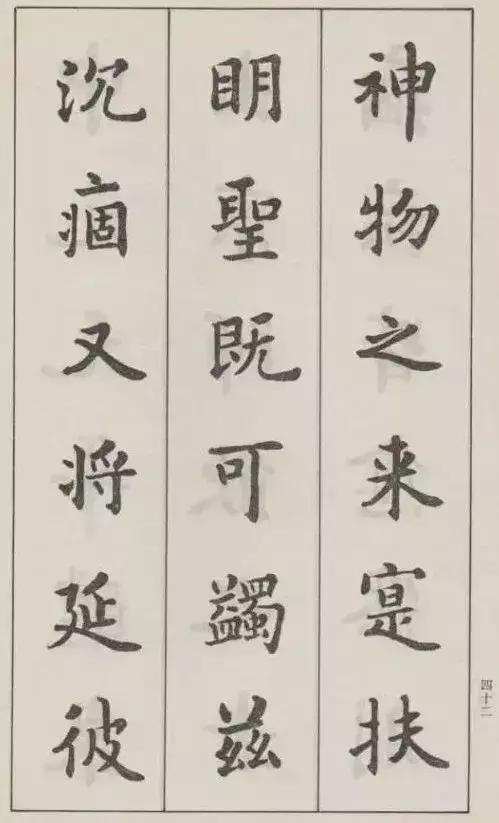 神物之来寔扶
明聖既可蠲兹
沉痼又将延彼
四十二